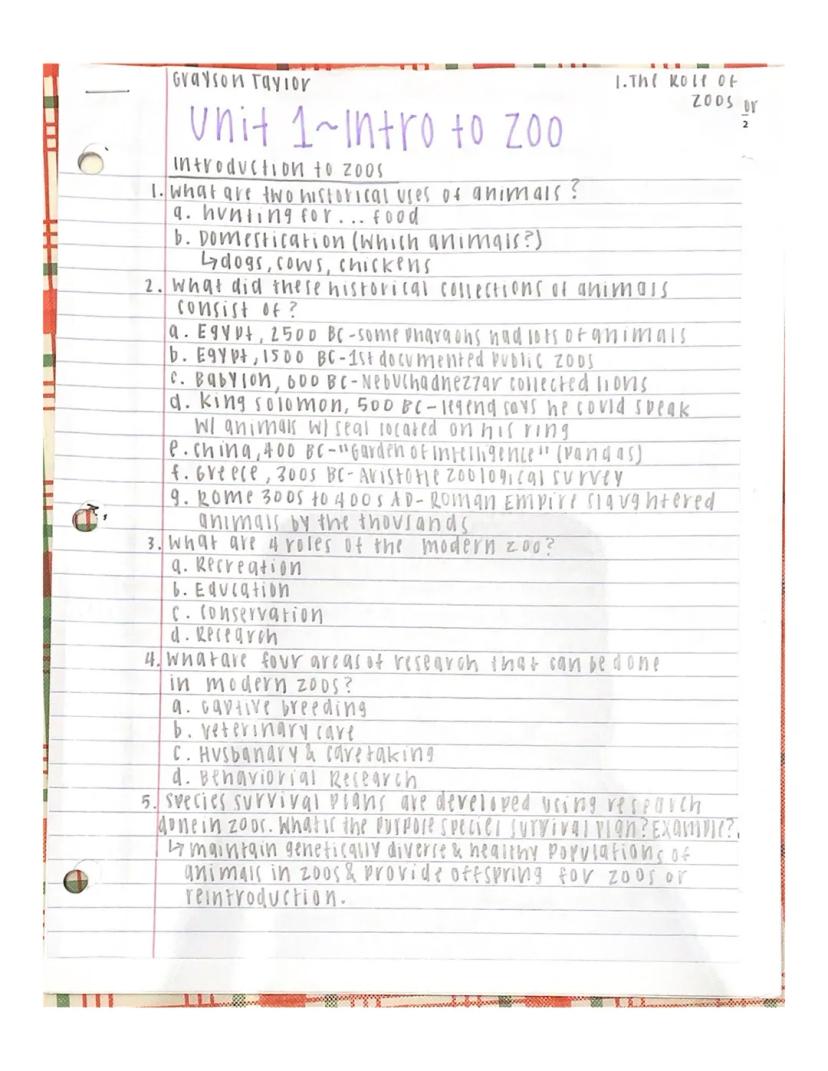 Grayson Taylor
1. The Role of
Zoos
Unit 1~Intro to Zoo
Introduction to Zoos
1. What are two historical uses of animals?
a. hunting for... food
b. Domestication (which animals?)
↳dogs, cows, chickens
2. What did these historical collections of animals
consist of?
a. Egypt, 2500 BC-some pharaohs had lots of animals
b. Egypt, 1500 BC-1st documented public zoos
c. Babylon, 600 BC-Nebuchadnezzar collected lions
d. King Solomon, 500 BC-legend says he could speak
w/ animals w/ seal located on his ring
e. China, 400 BC-"Garden of Intelligence" (pandas)
f. Greece, 300s BC-Aristotle zoological survey
g. Rome 300s to 400s AD-Roman Empire slaughtered
animals by the thousands
3. What are 4 roles of the modern zoo?
a. Recreation
b. Education
c. Conservation
d. Research
4. What are four areas of research that can be done
in modern zoos?
a. captive breeding
b. veterinary care
c. Husbanary & caretaking
d. Behaviorial Research
5. species survival plans are developed using research
done in zoos. What is the purpose species survival plan? Example?
↳ maintain genetically diverse & healthy populations of
animals in zoos & provide offspring for zoos or
reintroduction.